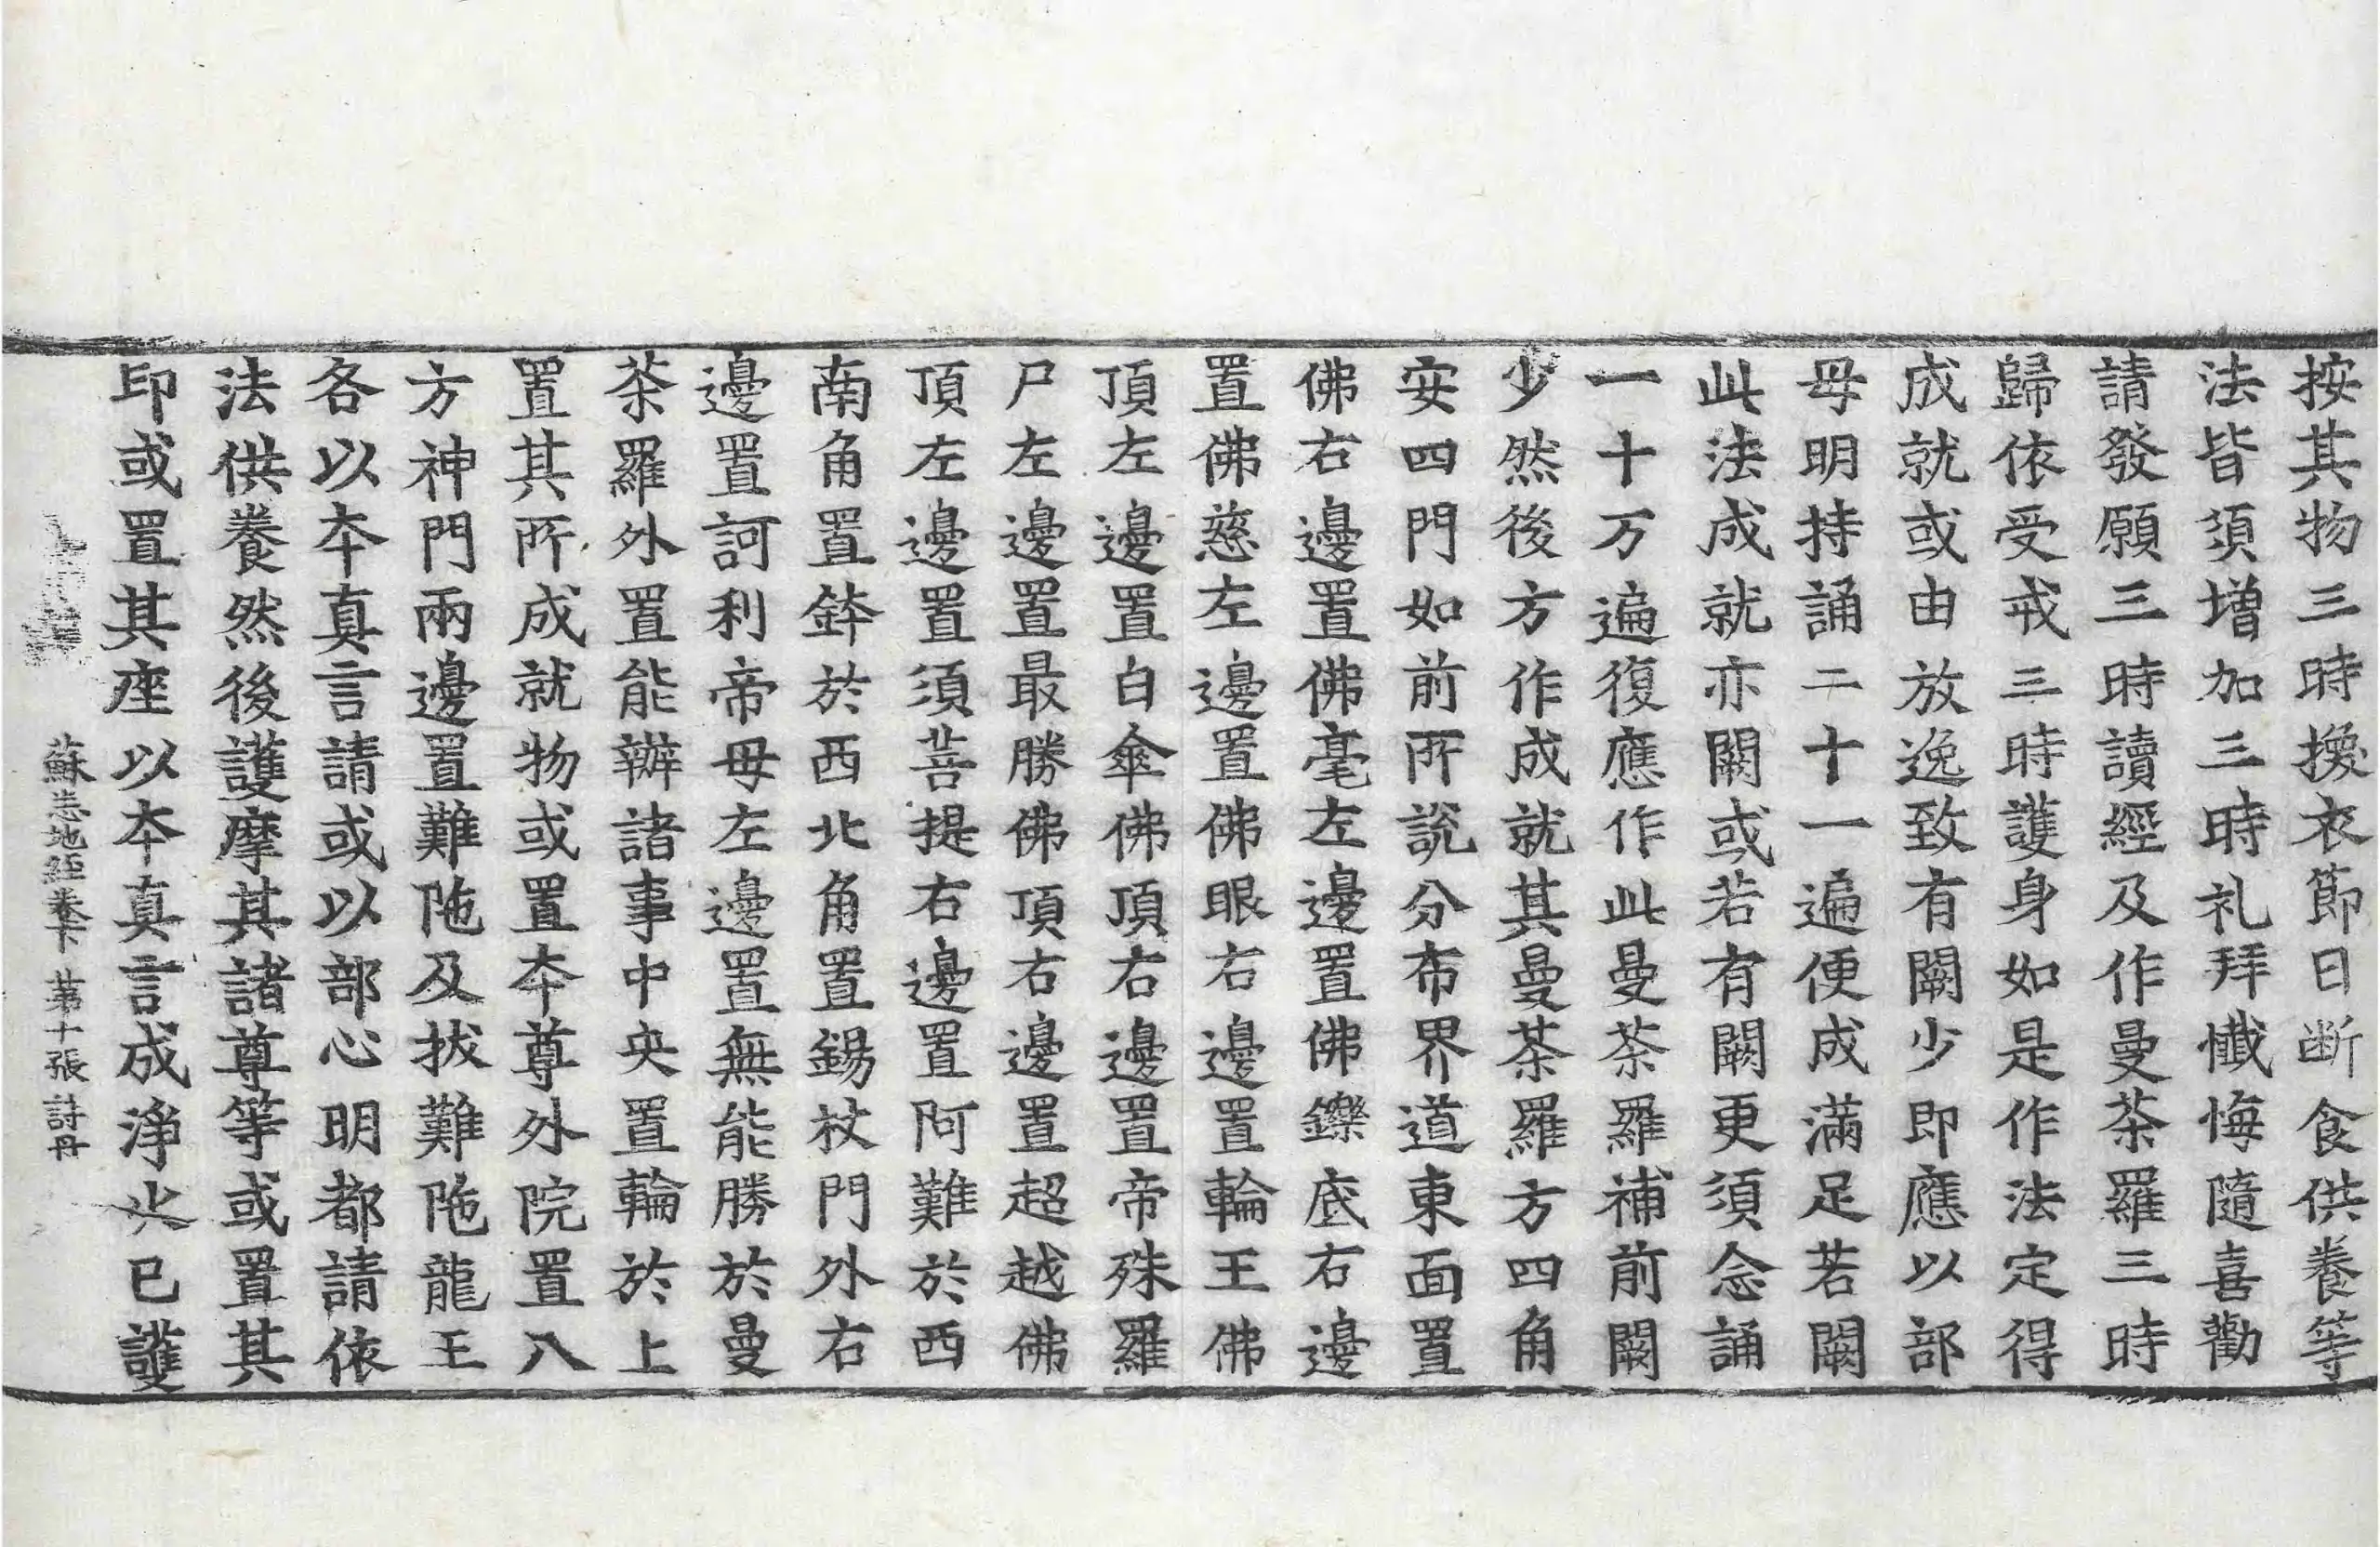 按其物三時換衣節日断食供養等
法皆須增加三時礼拜懺悔隨喜勸
請發願三時讀經及作曼荼羅三時
歸依受戒三時護身如是作法定得
成就或由放逸致有闕少即應以部
母明持誦二十一遍便成滿足若闕
此法成就亦闕或若有闕更須念誦
一十万遍復應作此曼荼羅補前闕
少然後方作成就其曼荼羅方四角
安四門如前所說分布界道東面置
佛右邊置佛毫左邊置佛鑠底右邊
置佛慈左邊置佛眼右邊置輪王佛
頂左邊置白傘佛頂右邊置帝殊羅
尸左邊置最勝佛頂右邊置超越佛
頂左邊置須菩提右邊置阿難於西
南角置鉢於西北角置錫杖門外右
邊置訶利帝母左邊置無能勝於曼
荼羅外置能辦諸事中央置輪於上
置其所成就物或置本尊外院置八
方神門兩邊置難陁及拔難陁龍王
各以本真言請或以部心明都請依
法供養然後護摩其諸尊等或置其
印或置其座以本真言成淨火已護
蘇悉地經卷下 苐十張 詩丹